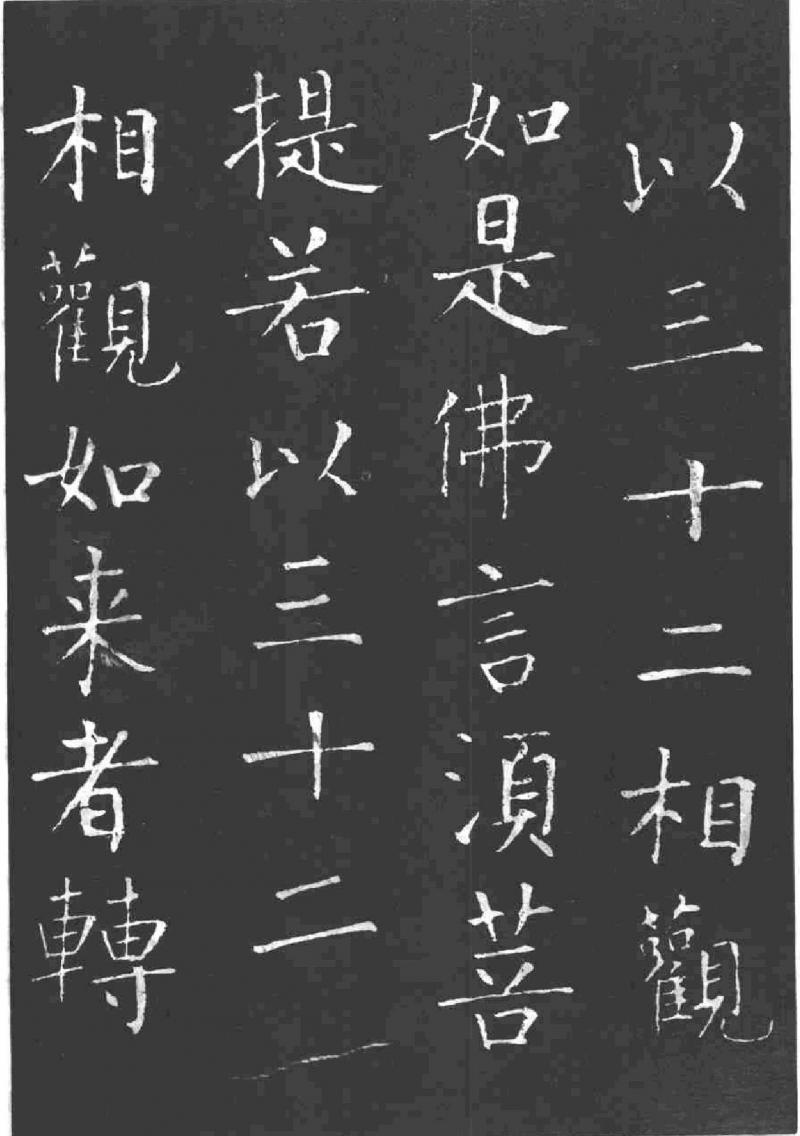 以三十二相觀
如是佛言湏菩
提若以三十二
相觀如来者轉